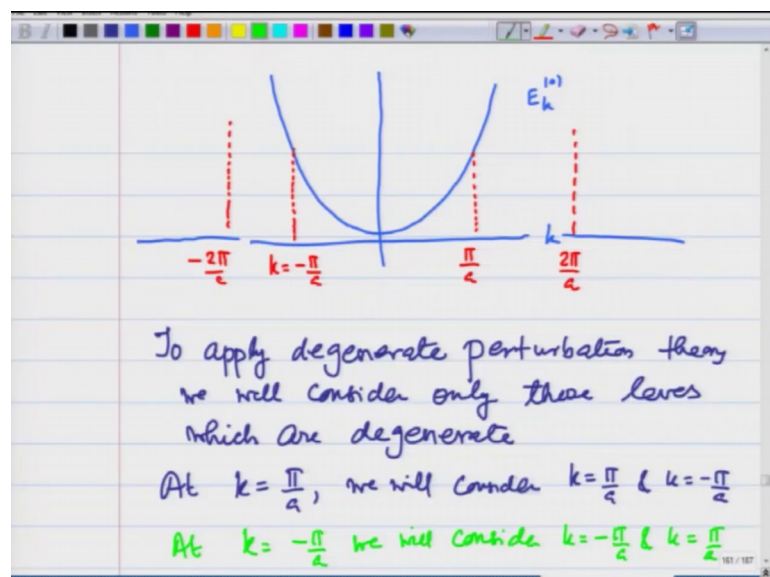 E_k^(0)
k
-2π/a k=-π/a π/a 2π/a
To apply degenerate perturbation theory
we will consider only those leves
which are degenerate
At k = π/a, we will consider k=π/a & k=-π/a
At k = -π/a we will consider k=-π/a & k=π/a
161 / 167